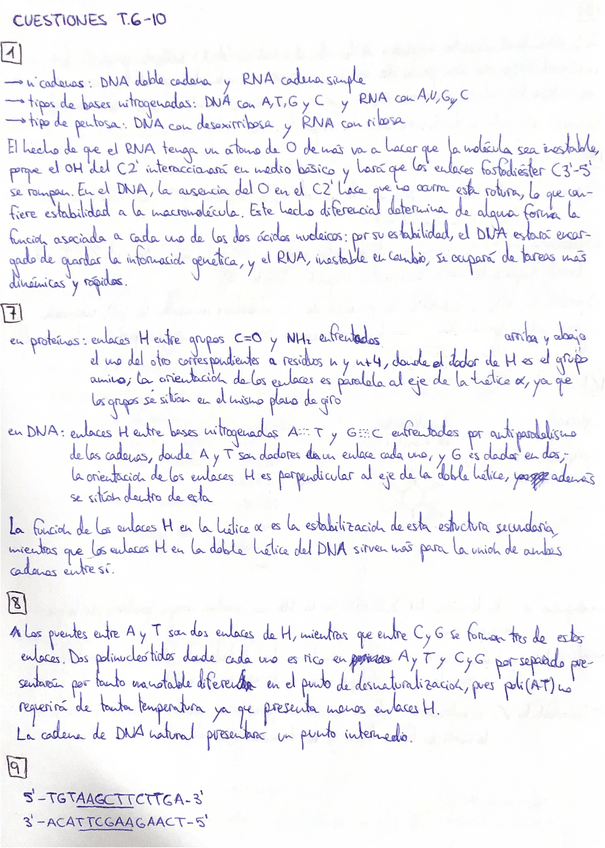 CUESTIONES T.6-10
1
→ nº cadenas: DNA doble cadena y RNA cadena simple
→ tipos de bases nitrogenadas: DNA con A,T,G y C y RNA con A,U,G y C
→ tipo de pentosa: DNA con desoxirribosa y RNA con ribosa
El hecho de que el RNA tenga un átomo de O de más va a hacer que la molécula sea inestable,
porque el OH del C2' interaccionará en medio básico y hará que los enlaces fosfodiéster C3'-5'
se rompan. En el DNA, la ausencia del O en el C2' hace que no ocurra esta rotura, lo que con-
fiere estabilidad a la macromolécula. Este hecho diferencial determina de alguna forma la
función asociada a cada uno de los dos ácidos nucleicos: por su estabilidad, el DNA estará encar-
gado de guardar la información genética, y el RNA, inestable en cambio, se ocupará de tareas más
dinámicas y rápidas.
7
en proteínas: enlaces H entre grupos C=O y NH₂ enfrentados arriba y abajo
el uno del otro correspondientes a residuos n y n+4, donde el dador de H es el grupo
amino; la orientación de los enlaces es paralela al eje de la hélice α, ya que
los grupos se sitúan en el mismo plano de giro
en DNA: enlaces H entre bases nitrogenadas A::T y G:::C enfrentados por antiparalelismo
de las cadenas, donde A y T son dadores de un enlace cada uno, y G es dador en dos;
la orientación de los enlaces H es perpendicular al eje de la doble hélice, además
se sitúan dentro de esta
La función de los enlaces H en la hélice α es la estabilización de esta estructura secundaria,
mientras que los enlaces H en la doble hélice del DNA sirven más para la unión de ambas
cadenas entre sí.
8
Los puentes entre A y T son dos enlaces de H, mientras que entre C y G se forman tres de estos
enlaces. Dos polinucleótidos donde cada uno es rico en A y T y C y G por separado pre-
sentarán por tanto una notable diferencia en el punto de desnaturalización, pues poli(AT) no
requerirá de tanta temperatura ya que presenta menos enlaces H.
La cadena de DNA natural presentará un punto intermedio.
9
5'-TGTAAGCTTCTTGA-3'
3'-ACATTCGAAGAACT-5'